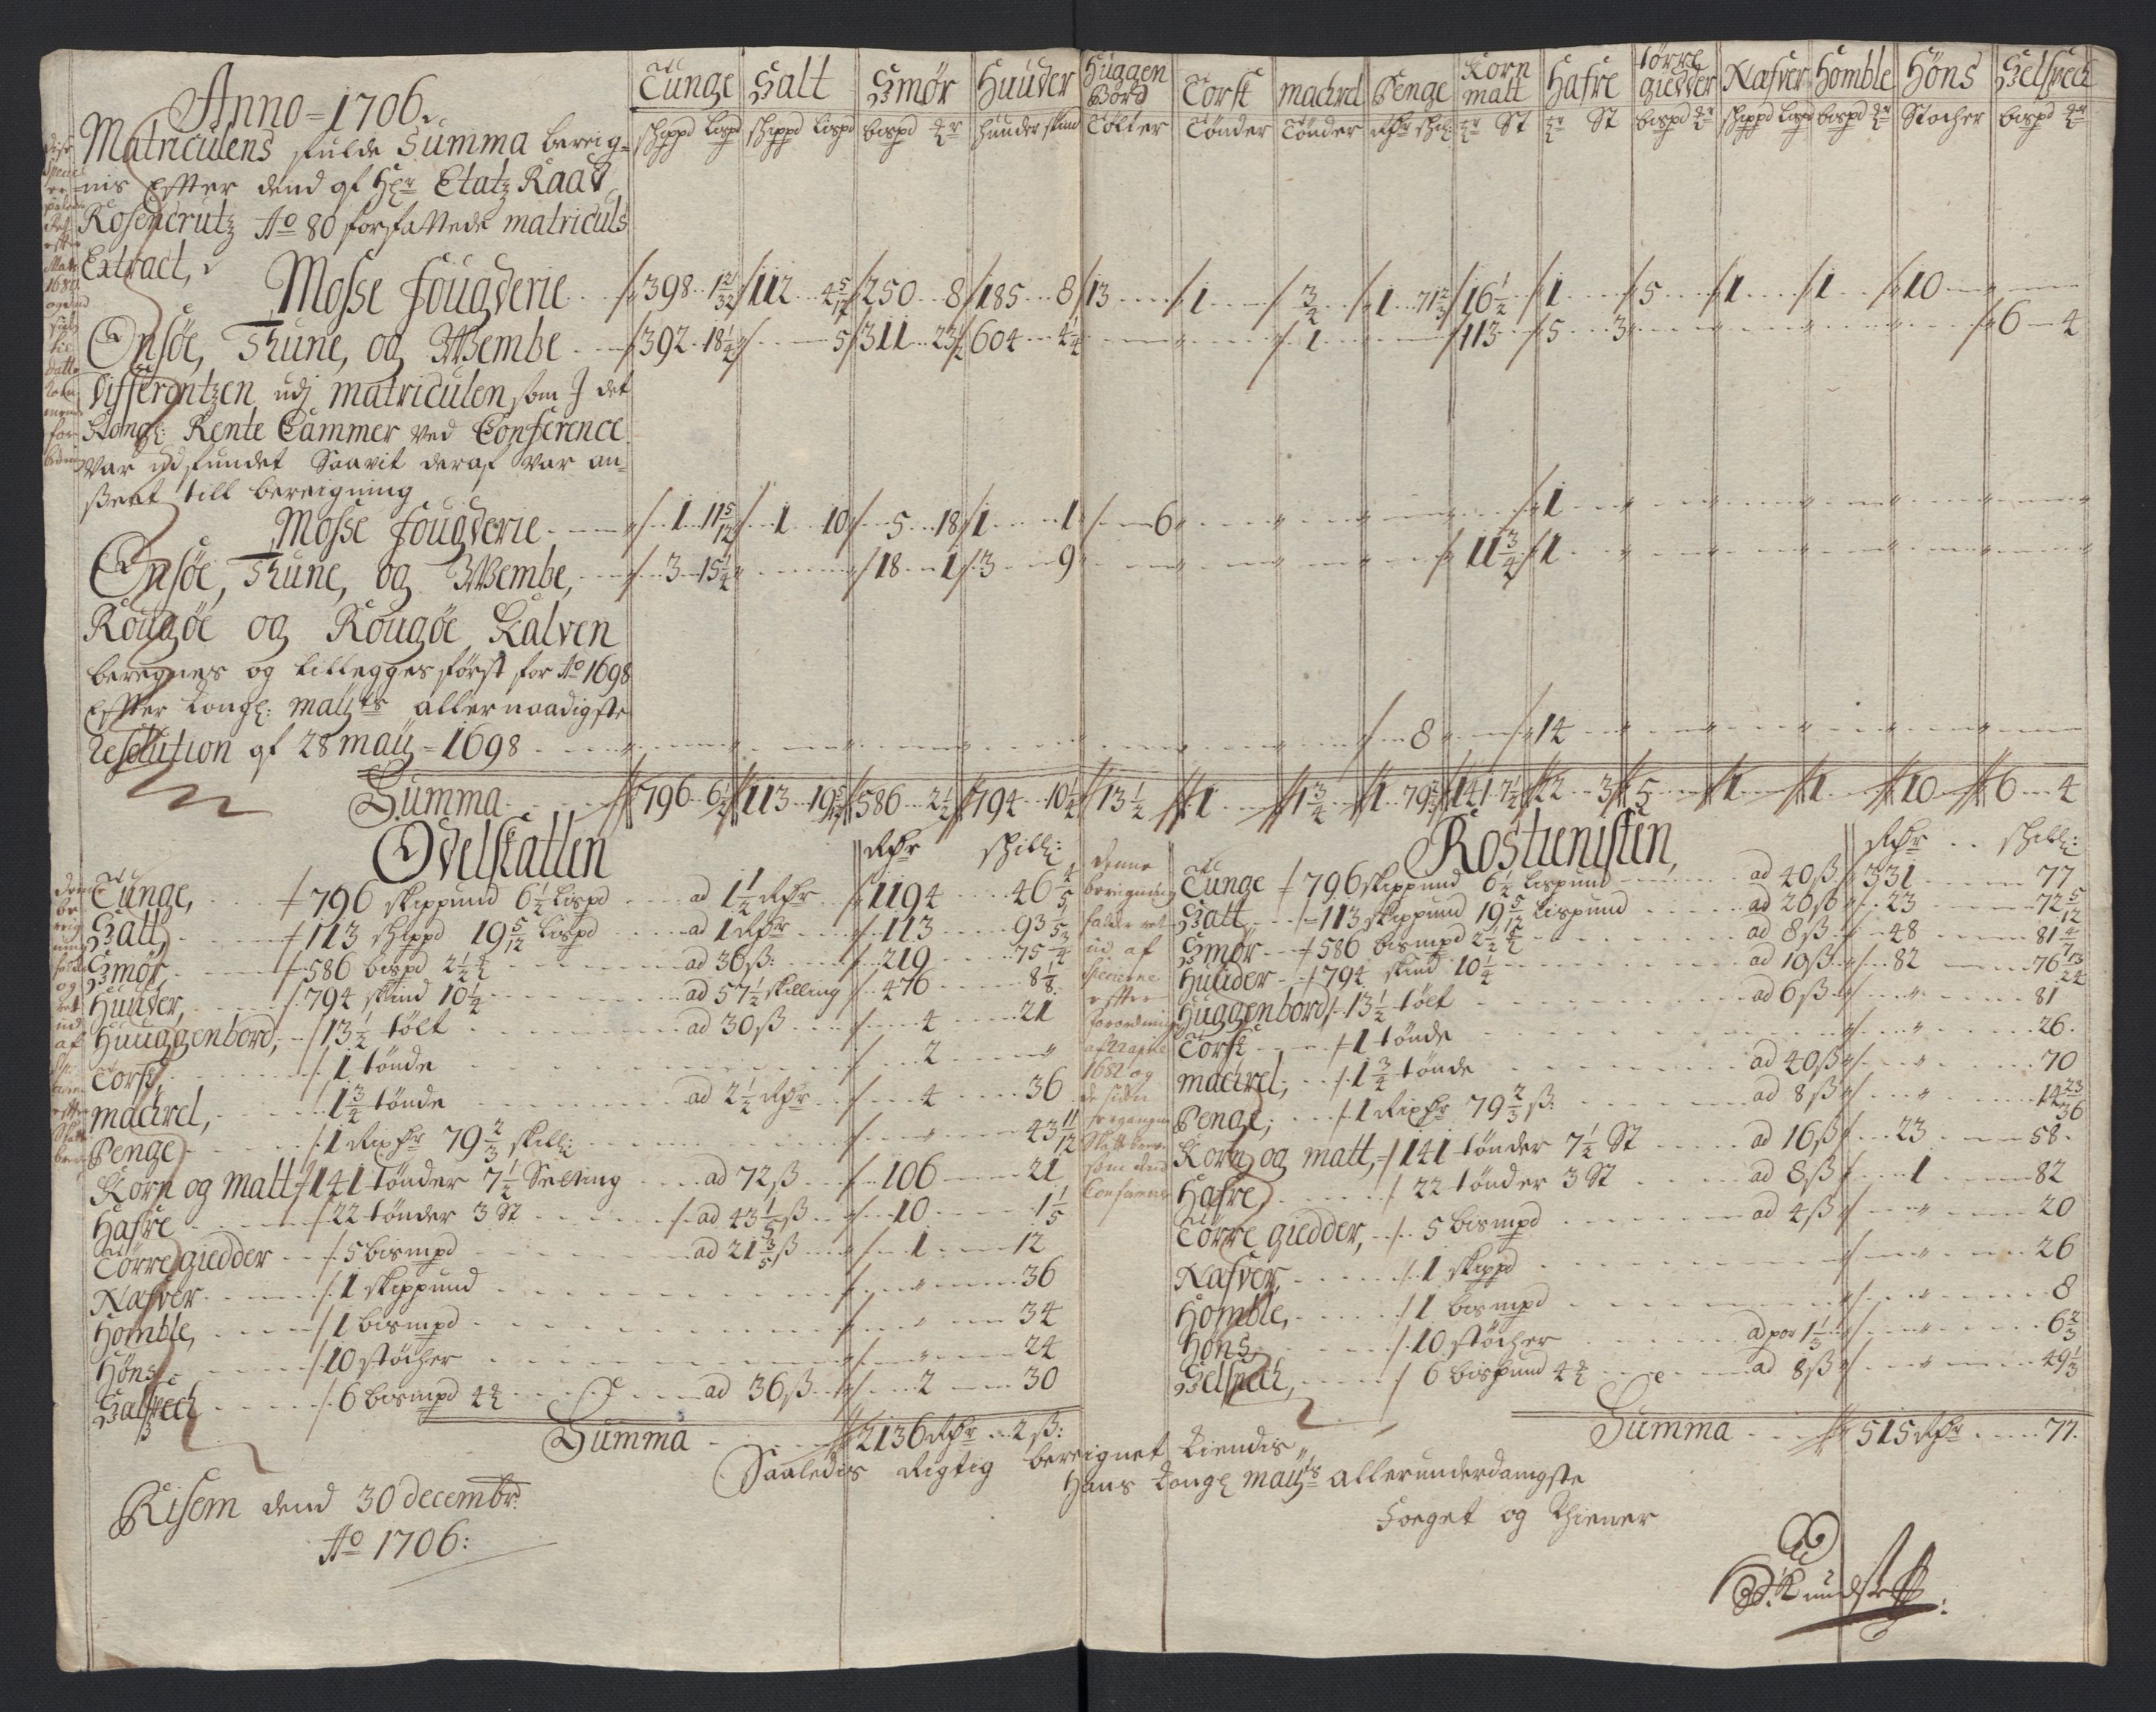 Anno = 1706.
Matriculens fulde Summa bereig=
nis Effter dend af Hr Etatz Raad
Rosencrutz Ao 80 forfattede matriculs
Extract,
Tunge Salt Smør Huuder Huggen Bord Torsk macrel Penge Korn matt Hafre tørre giedder Nafver Homble Høns Selspech
schippd lispd schippd lispd bispd hunder skind Tolter Tønder Tønder Rdr schil: St St bispd schippd lispd bispd Stocher bispd
Mosse fougderie 398 1 21/32 112 4 5/12 250 8 185 8 13 1 3/4 1 71 2/3 16 1/2 1 5 1 1 10
Onsøe, Thune, og Wembe 392 18 1/4 5 311 23 1/2 604 4 1/4 1 113 5 3 6 4
Differentzen udj matriculen som I det
Kongl: Rente Cammer ved Conference
var udfundet Saavit deraf var an=
sent till bereigning
Mosse fougderie 1 11 5/12 1 10 5 18 1 1 6 1
Onsøe, Thune, og Wembe, 3 15 1/4 18 1 3 9 11 3/4 1
Rougøe og Rougøe Kalven
beregnes og tillegges først for Ao 1698
Effter Kongl: mayts allernaadigste
resolution af 28 may = 1698 8 14
Summa 796 6 1/2 113 19 5/12 586 2 1/2 794 10 1/4 13 1/2 1 1 3/4 1 79 2/3 141 7 1/2 22 3 5 1 1 10 6 4
Odelskatten
Rdr schill:
Tunge, 796 skippund 6 1/2 lispd ad 1 1/2 Rdr 1194 46 4/5
Salt, 113 schippd 19 5/12 lispd ad 1 Rdr 113 93 1/5
Smør, 586 bispd 2 1/2 ad 36 ß: 219 75 3/4
Huuder, 794 skind 10 1/4 ad 57 1/2 skilling 476 8 1/8
Huuggenbord, 13 1/2 tolt ad 30 ß 4 21
Torsk, 1 tønde 2 "
macrel, 1 3/4 tønde ad 2 1/2 Rdr 4 36
Penge 1 Rixdr 79 2/3 skill: " 43 11/12
Korn og matt 141 Tønder 7 1/2 Setting ad 72 ß 106 21
Hafre 22 tønder 3 St ad 43 1/5 ß 10 1 1/5
Tørre giedder 5 bismpd ad 21 3/5 ß 1 12
Nafver 1 skippund " 36
Homble, 1 bismpd " 34
Høns 10 støcher " 24
Salspech 6 bismpd 4 ad 36 ß 2 30
Summa 2136 Rdr 2 ß:
denne
bereigning
falder ret
ud af
effter
forordning
af
1682 og
de siden
forgangne
som dend
Rostienisten,
Rdr schill:
Tunge 796 skippund 6 1/2 lispund ad 40 ß 331 77
Salt 113 skippund 19 5/12 lispund ad 20 ß 23 72 5/12
Smør 586 bismpd 2 1/2 ad 8 ß 48 81
Huuder 794 skind 10 1/4 ad 10 ß 82 76 13/24
Huggenbord, 13 1/2 tolt ad 6 ß " 81
Torsk 1 tønde " 26.
macrel, 1 3/4 tønde ad 40 ß " 70
Penge, 1 Rixdr 79 2/3 ß: ad 8 ß " 14 23/36
Korn og matt, 141 tønder 7 1/2 St ad 16 ß 23 58.
Hafre 22 tønder 3 St ad 8 ß 1 82
Tørre giedder, 5 bismpd ad 4 ß " 20
Nafver, 1 skippd " 26
Homble, 1 bismpd " 8
Høns, 10 støcher ad par 1 1/3 " 6 2/3
Selspech, 6 bispund 4 ad 8 ß " 49 1/3
Summa 515 Rdr 77.
Saaledis Rigtig bereignet Kiendis
Hans Kongl mayts allerunderdanigste
Foeget og Thiener
Risem dend 30 decembr:
Ao 1706: